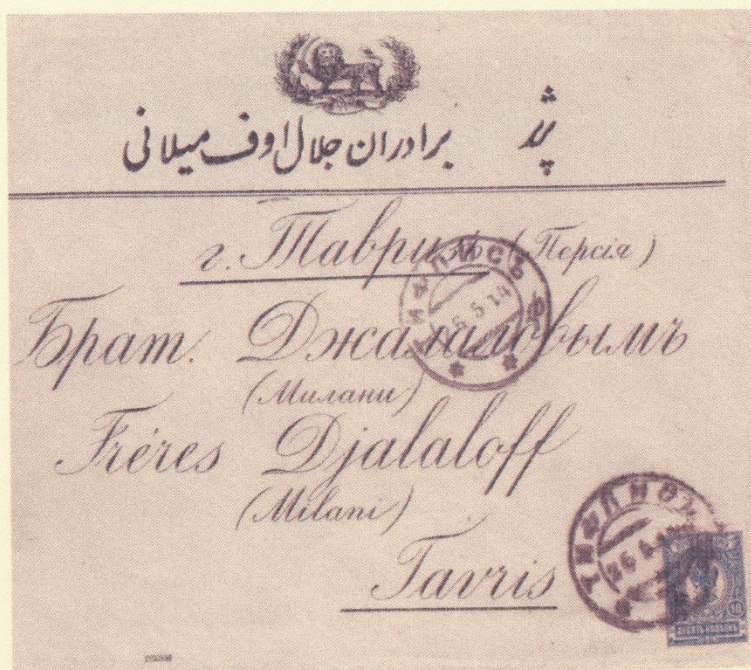 برادران جلال اوف میلانی
г. Тавризъ (Персія)
Брат. Джалаловымъ
(Милани)
Frères Djalaloff
(Milani)
Tavris
ТИФЛИСЪ
6.5.14
ТИФЛИСЪ
10
ДЕСЯТЬ КОПѢЕКЪ